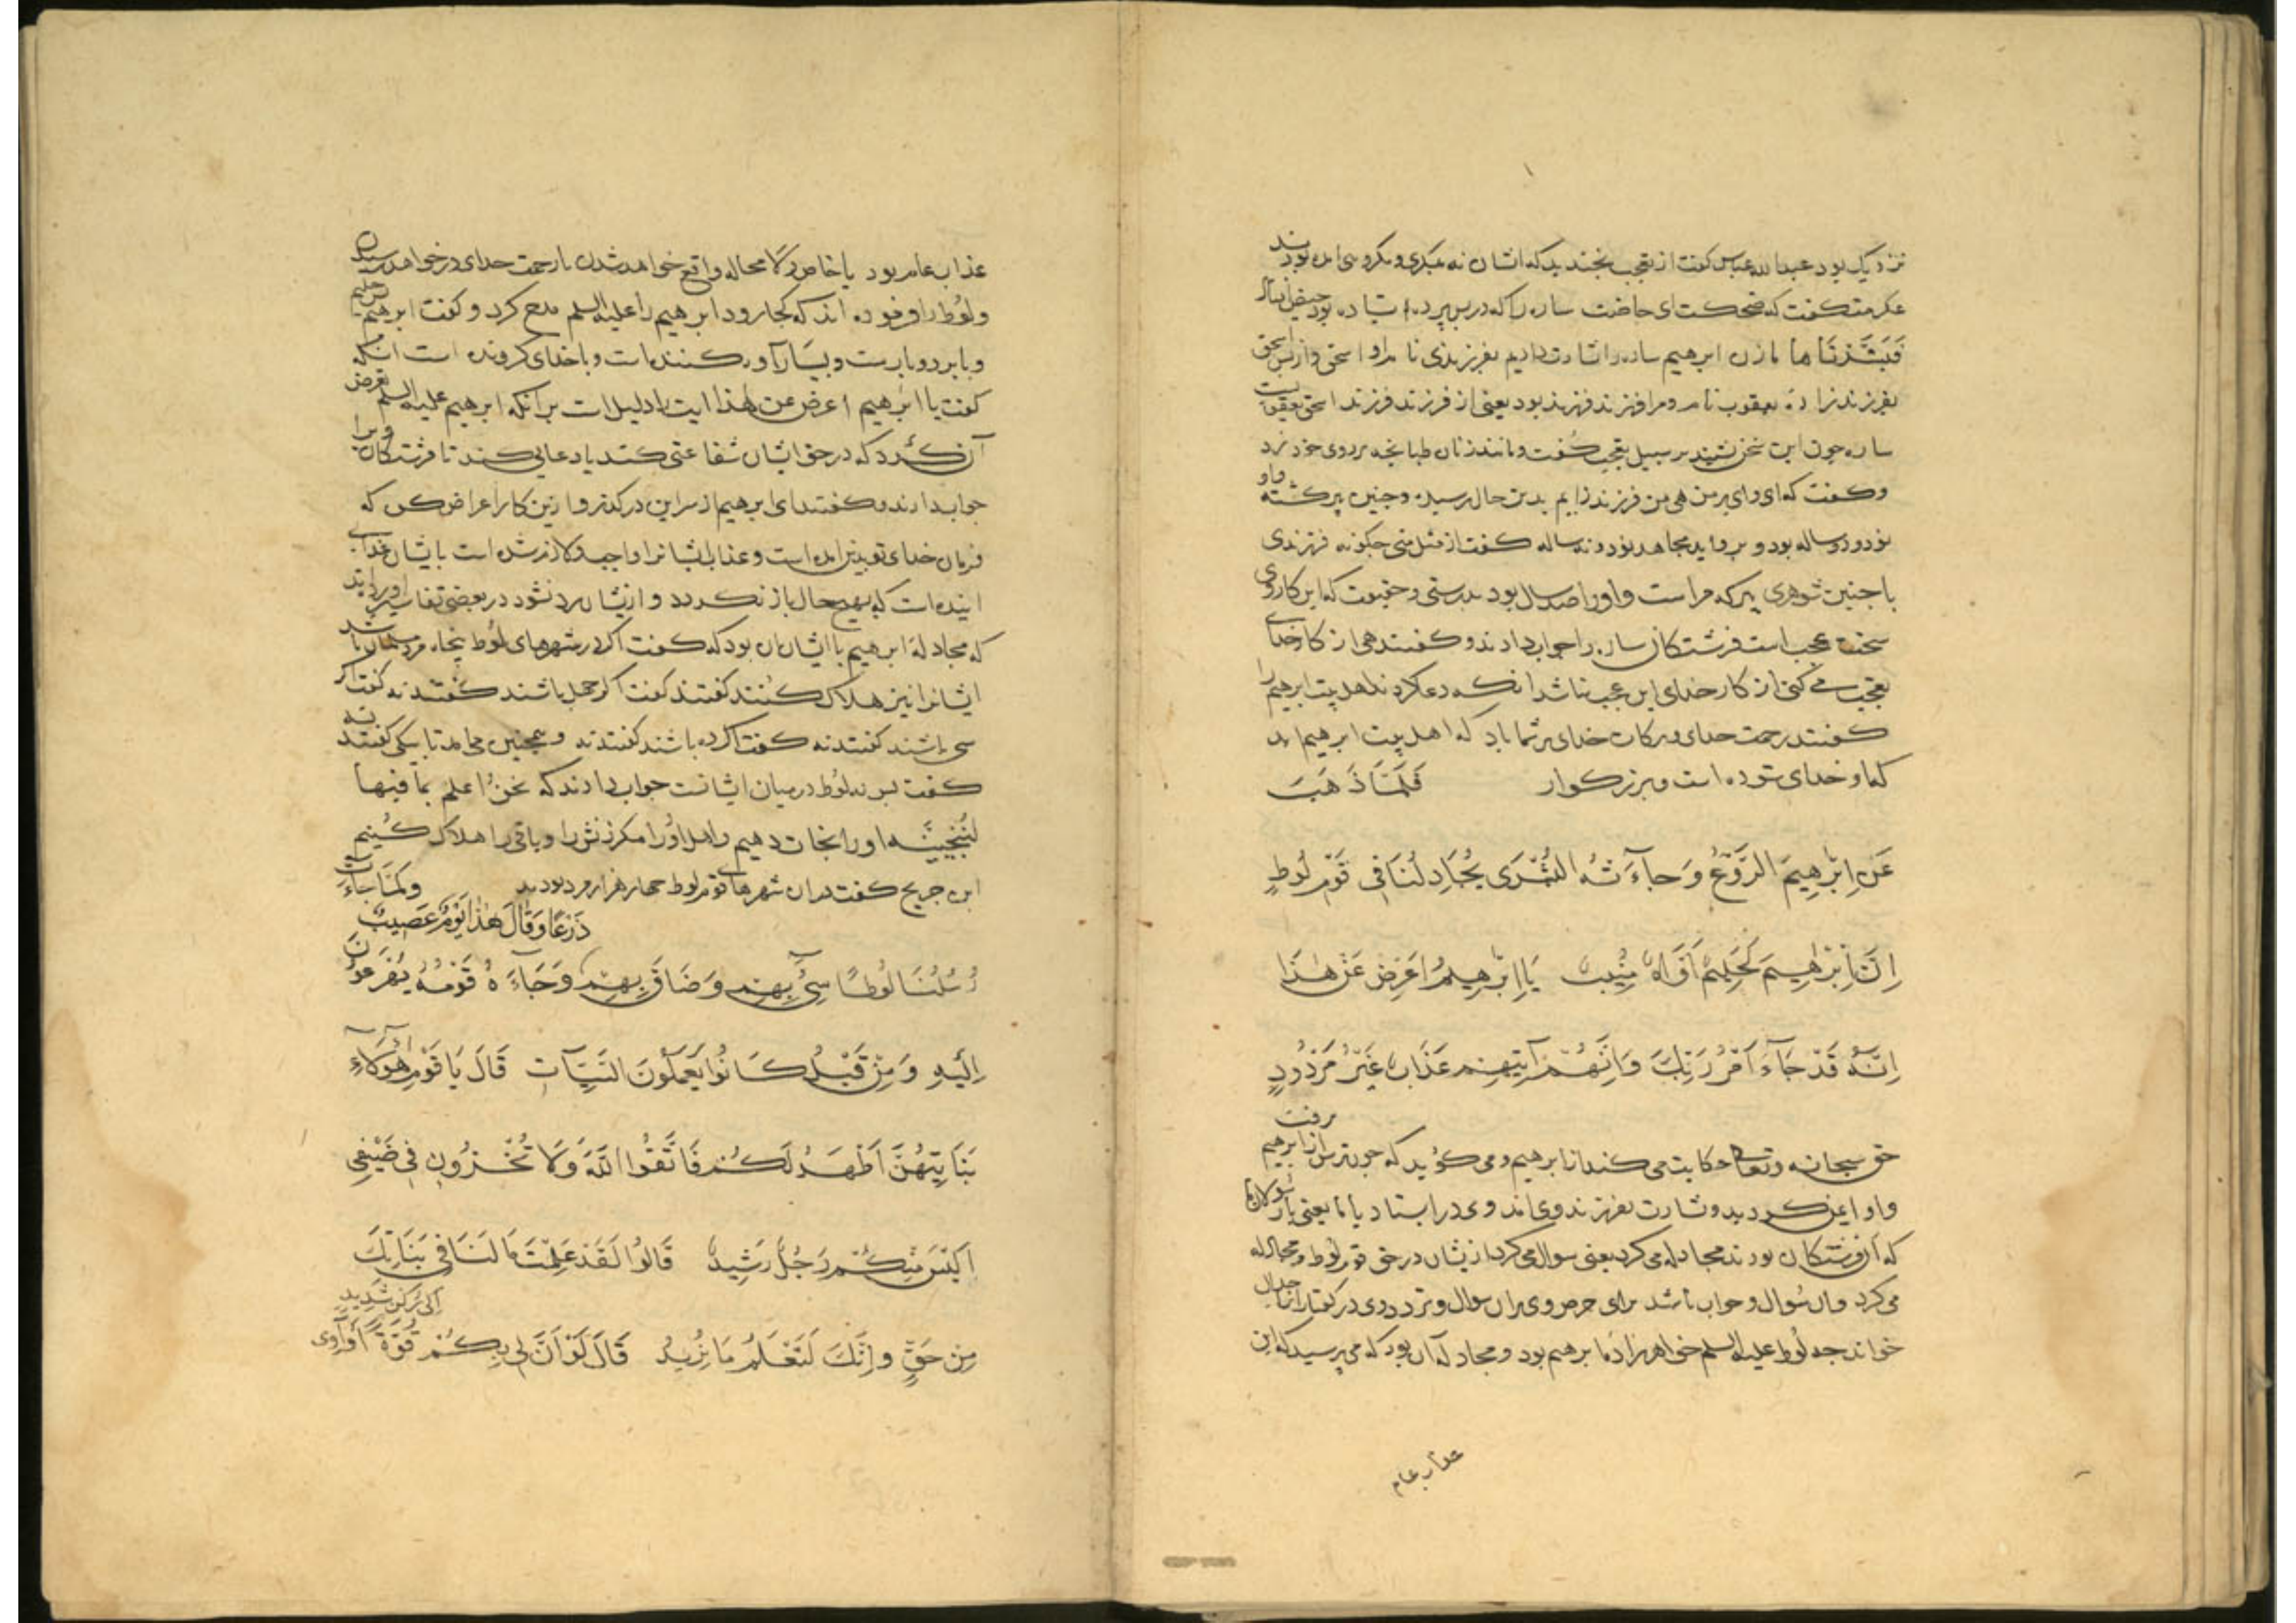 نزدیک بود عبدالله عباس کفت از تعجب بخندید که ایشان نه
عکرمه کفت که ضحکت ای حاضت ساره را که در پس پرده ایستاده بود حیض
فَبَشَّرْنَا ها ما زن ابرهیم ساره را بشارت دادیم بفرزندی نام او اسحق و از پس اسحق
بفرزندزاده یعقوب نام و مرا فرزند فرزند بود یعنی از فرزند فرزند اسحق یعقوبست
ساره چون این سخن بشنید بر سبیل تعجب کفت و مانند زنان طبانجه بر روی خود زد
و کفت که ای وای بر من هی من فرزند زایم بدین حال رسیده و چنین پیر کشته و او
نود و دو ساله بود و بروایت مجاهد نود و نه ساله کفت از مثل منی چکونه فرزندی
با چنین شوهری پیر که مراست و او را صد سال بود بدرستی و حقیقت که این کاروی
سخت عجب است فرشتکان ساره را جواب دادند و کفتند هی از کار خدای
تعجب می کنی از کار خدای این عجب نباشد انکه دعا کردند اهل بیت ابرهیم را
کفتند رحمت خدای و برکات خدای بر شما باد که اهل بیت ابرهیم اید
که او خدای ستوده است و بزرکوار فَلَمَّا ذَهَبَ
عَنْ اِبْرٰهِيمَ الرَّوْعُ وَجَآءَتْهُ الْبُشْرَى يُجَادِلُنَا فِي قَوْمِ لُوطٍ
اِنَّ اِبْرٰهِيمَ لَحَلِيمٌ اَوَّاهٌ مُنِيبٌ يَا اِبْرٰهِيمُ اَعْرِضْ عَنْ هٰذَا
اِنَّهُ قَدْ جَآءَ اَمْرُ رَبِّكَ وَاِنَّهُمْ آتِيهِمْ عَذَابٌ غَيْرُ مَرْدُودٍ
حق سبحانه وتعالی حکایت می کند از ابرهیم و می کوید که چون ترس از ابرهیم برفت
و او ایمن کردید و بشارت بفرزند وی امد وی در ایستاد با ما یعنی با رسولان ما
که آن فرشتکان بودند مجادله می کرد یعنی سوال می کرد از یشان در حق قوم لوط و مجادله
می کرد و ان سوال و جواب باشد برای حرص وی بران سوال و تردد وی در کفتار انرا جدال
خواند چه لُوط علیه السلم خواهرزاده ابرهیم بود و مجادله آن بود که می پرسید که این
عذاب عام
عذاب عام بود یا خاص و لا محاله واقع خواهد شدن یا رحمت خدای در خواهد رسیدن
و لُوط را فرموده اند که کجا رود ابرهیم را علیه السلم مدح کرد و کفت ابرهیم بس حلیم
و با بردوباریست و بسیار آوه کننده است و با خدای کرونده است انکه
کفت یا ابرٰهیم اعرض عن هٰذا این دلیل است بر انکه ابرهیم علیه السلم تعرض
آن کرد که در حق ایشان شفاعتی کند یا دعایی کند تا فرشتکان ویرا
جواب دادند و کفتند ای ابرهیم از سر این درکذر و ازین کار اعراض کن که
فرمان خدای تو بدین امده است و عذاب ایشانرا واجب و لازم شده است بایشان عذاب
اینده است که بهیچ حال باز نکردد و از یشان رد نشود در بعضی تفاسیر اورده اند
که مجادلهٔ ابرهیم با ایشان آن بود که کفت اکر در شهرهای لُوط پنجاه مرد مسلمان باشند
ایشانرا نیز هلاک کنند کفتند نه کفت اکر چهل باشند کفتند نه کفت اکر
سی باشند کفتند نه کفت اکر ده باشند کفتند نه و همچنین می امد تا بیکی کفتند نه
کفت لُوط در میان ایشانست جواب دادند که نحنُ اعلم بما فیها
لنُنجّينّه او را نجات دهیم و اهل اورا مکر زنش را و باقی را هلاک کنیم
ابن جریج کفت در ان شهرهای قوم لوط چهار هزار مرد بودند وَلَمَّا جَآءَتْ
رُسُلُنَا لُوطًا سِيءَ بِهِمْ وَضَاقَ بِهِمْ ذَرْعًا وَقَالَ هٰذَا يَوْمٌ عَصِيبٌ وَجَآءَهُ قَوْمُهُ يُهْرَعُونَ
اِلَيْهِ وَمِنْ قَبْلُ كَانُوا يَعْمَلُونَ السَّيِّآتِ قَالَ يَا قَوْمِ هٰؤُلَآءِ
بَنَاتِي هُنَّ اَطْهَرُ لَكُمْ فَاتَّقُوا اللّٰهَ وَلَا تُخْزُونِ فِي ضَيْفِي
اَلَيْسَ مِنْكُمْ رَجُلٌ رَشِيدٌ قَالُوا لَقَدْ عَلِمْتَ مَا لَنَا فِي بَنَاتِكَ
مِنْ حَقٍّ وَاِنَّكَ لَتَعْلَمُ مَا نُرِيدُ قَالَ لَوْ اَنَّ لِي بِكُمْ قُوَّةً اَوْ آوِي اِلَى رُكْنٍ شَدِيدٍ